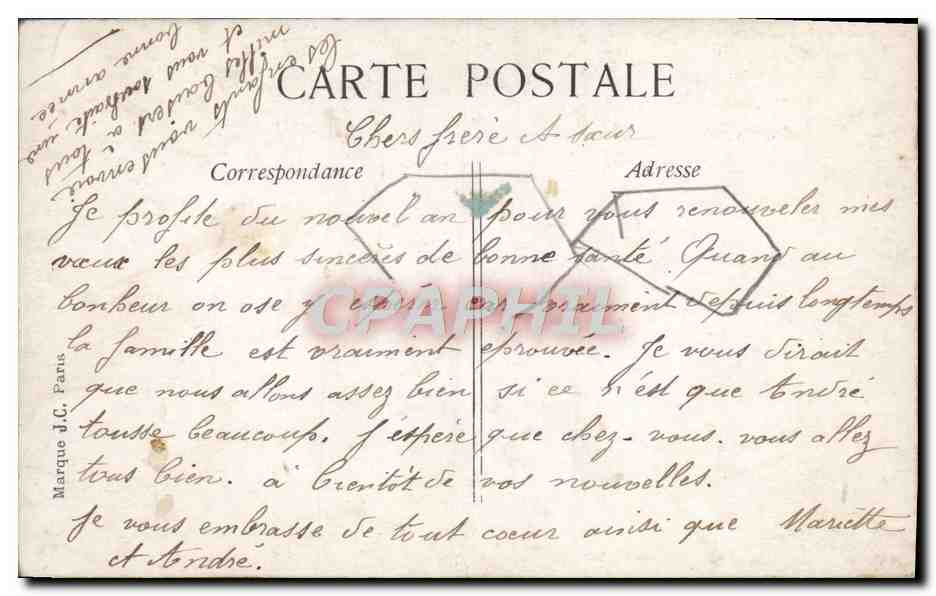 CARTE POSTALE
Chers frère et sœur
Correspondance
Adresse
Je profite du nouvel an pour vous renouveler mes
vœux les plus sincères de bonne santé. Quand au
bonheur on ose y en vraiment depuis longtemps
la famille est vraiment eprouvée. Je vous dirait
que nous allons assez bien si ce n'est que André
tousse beaucoup. J'éspère que chez-vous. vous allez
tous bien. à bientôt de vos nouvelles.
Je vous embrasse de tout coeur ainsi que Mariette
et André.
Les enfants vous envoie
milles baisers à tous
et vous souhaite une
bonne année
Marque J.C. Paris
CPAPHIL